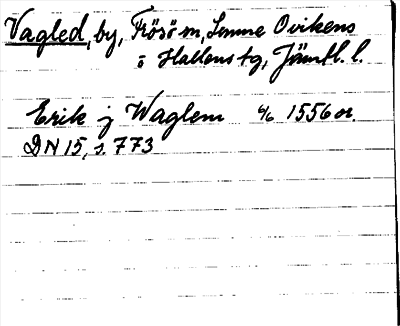 Vagled, by, Frösö sn, Sunne Ovikens
o Hallens tg, Jämtl. l.
Erik j Waglem % 1556 or.
DN 15, s. 773